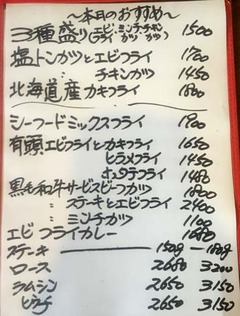 〜本日のおすすめ〜
3種盛り(エビ・ミンチ・チキン
フライ カツ カツ) 1500
塩トンカツとエビフライ 1700
〃 チキンカツ 1450
北海道産カキフライ 1800
シーフードミックスフライ 1900
有頭エビフライとカキフライ 1650
〃 ヒラメフライ 1450
〃 ホタテフライ 1480
黒毛和牛サービスビーフカツ 1800
〃 ステーキとエビフライ 2400
〃 ミンチカツ 1100
エビフライカレー 1680
ステーキ 150g 180g
ロース 2680 3200
ラムシン 2650 3150
ヒウチ 2650 3150